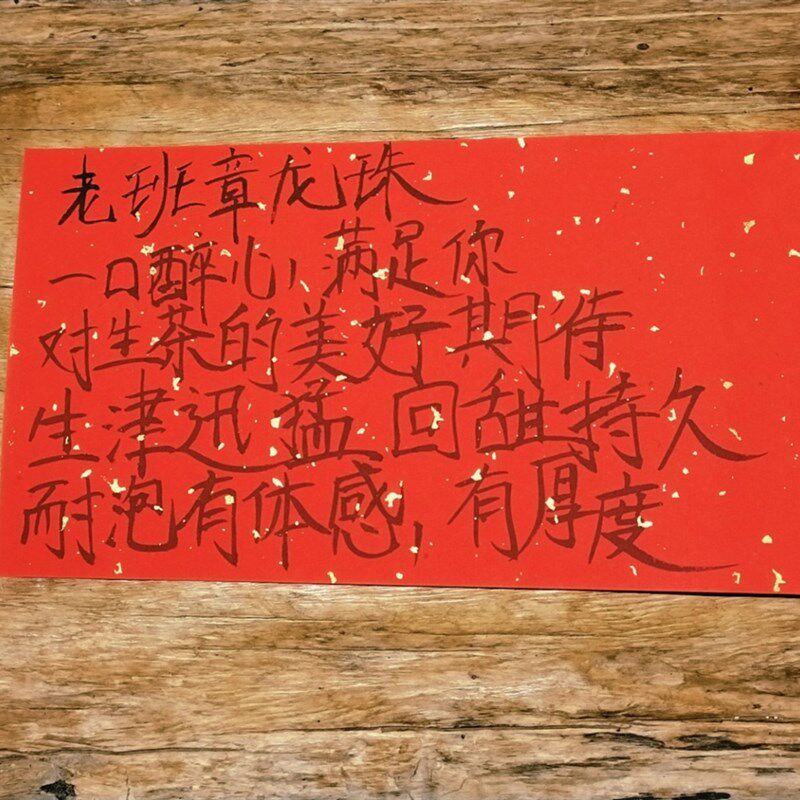 老班章龙珠
一口醉心，满足你
对生茶的美好期待
生津迅猛回甜持久
耐泡有体感，有厚度